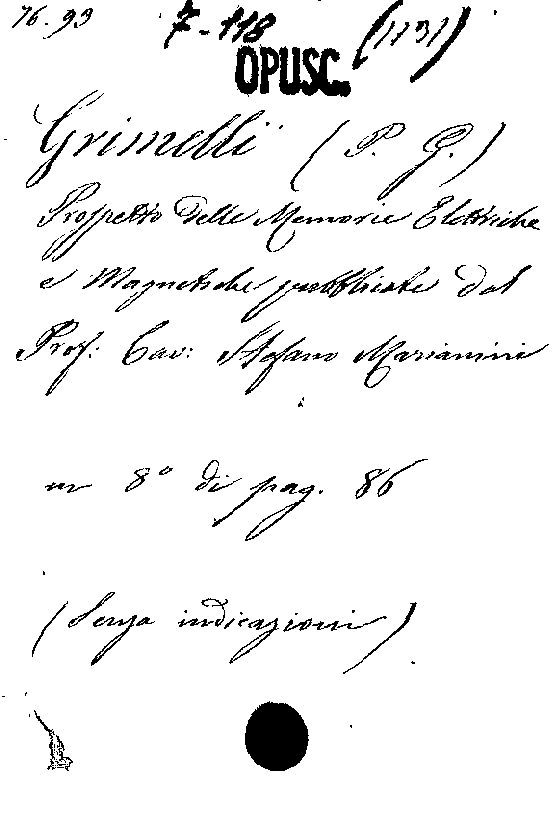 76.93 7-118 (1131)
OPUSC.
Grimelli (P. G.)
Prospetto delle Memorie Elettriche
e Magnetiche pubblicate dal
Prof: Cav: Stefano Marianini
in 8° di pag. 86
(Senza indicazioni)